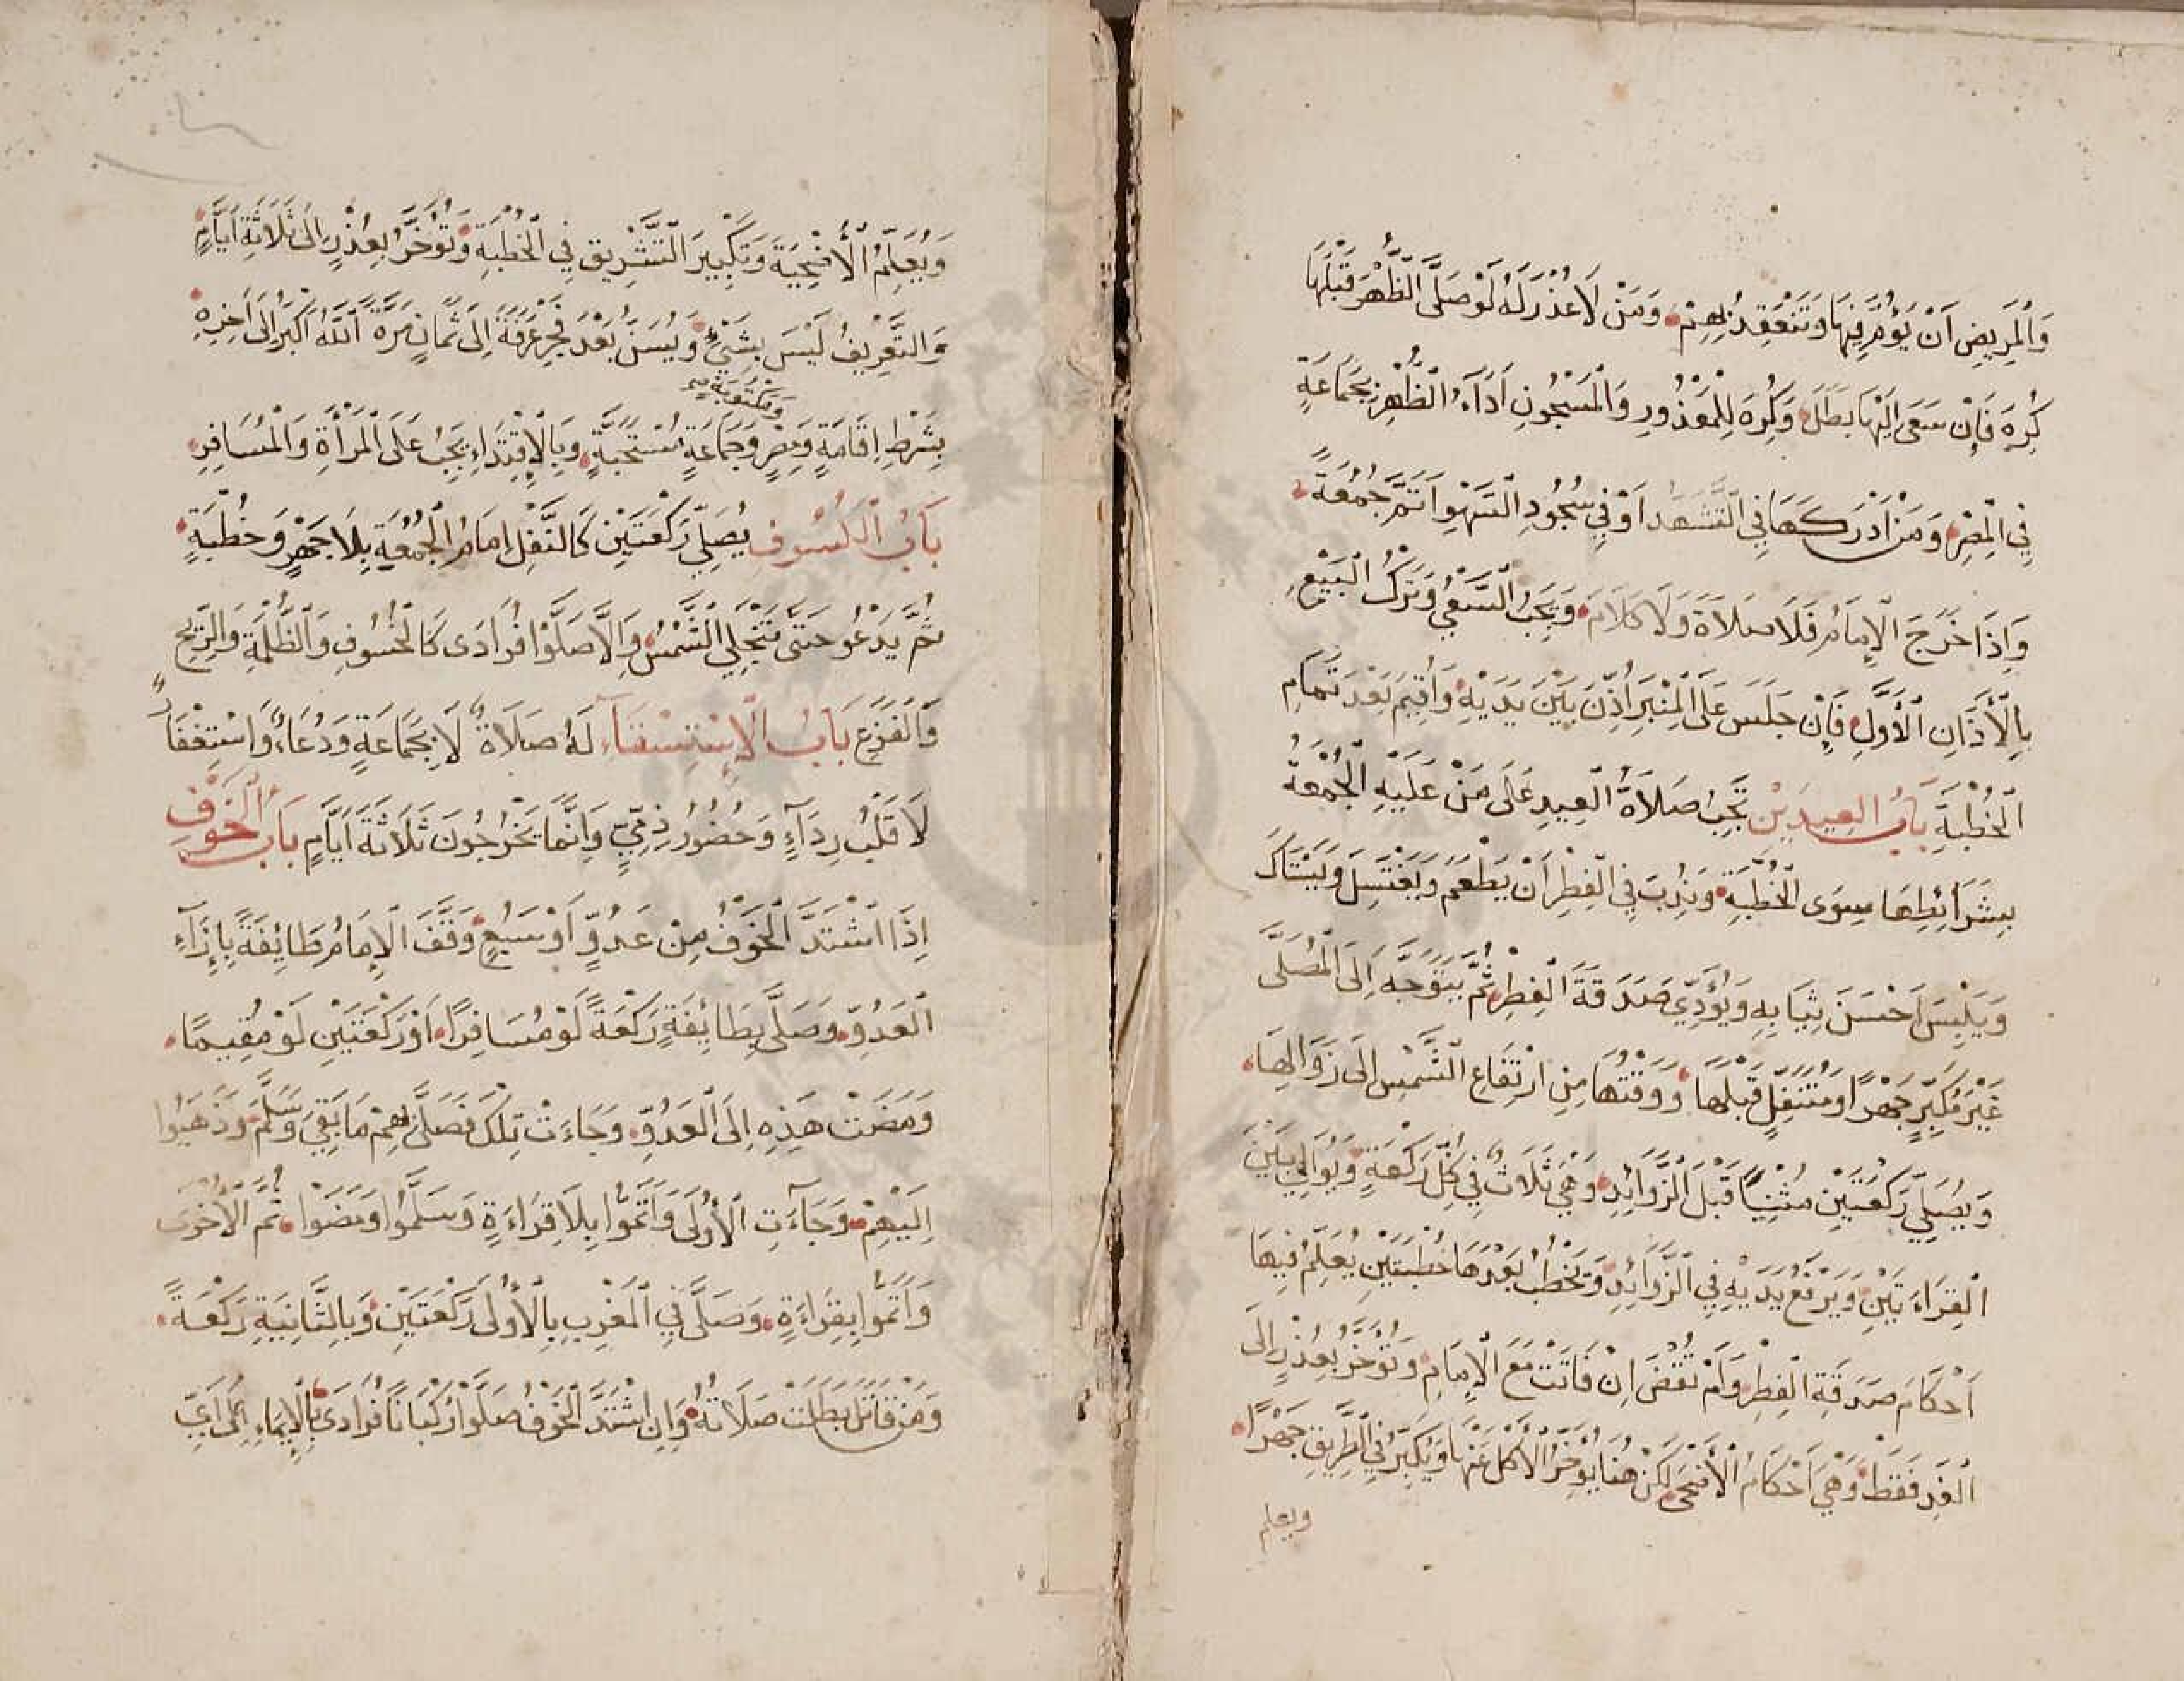 وَالْمَرِيضِ اَنْ يَؤُمَّ فِيْهَا وَتَنْعَقِدُ بِهِمْ وَمَنْ لَا عُذْرَ لَهُ لَوْ صَلَّى الظُّهْرَ قَبْلَهَا
كُرِهَ فَاِنْ سَعَى اِلَيْهَا بَطَلَ وَكُرِهَ لِلْمَعْذُورِ وَالْمَسْجُونِ اَدَاءُ الظُّهْرِ بِجَمَاعَةٍ
فِي الْمِصْرِ وَمَنْ اَدْرَكَهَا فِي التَّشَهُّدِ اَوْ فِي سُجُودِ السَّهْوِ اَتَمَّ جُمُعَةً
وَاِذَا خَرَجَ الْاِمَامُ فَلَا صَلَاةَ وَلَا كَلَامَ وَيَجِبُ السَّعْيُ وَتَرْكُ الْبَيْعِ
بِالْأَذَانِ الْأَوَّلِ فَاِنْ جَلَسَ عَلَى الْمِنْبَرِ اُذِّنَ بَيْنَ يَدَيْهِ وَاُقِيمَ بَعْدَ تَمَامِ
الْخُطْبَةِ بَابُ الْعِيدَيْنِ تَجِبُ صَلَاةُ الْعِيدِ عَلَى مَنْ عَلَيْهِ الْجُمُعَةُ
بِشَرَائِطِهَا سِوَى الْخُطْبَةِ وَنُدِبَ فِي الْفِطْرِ اَنْ يَطْعَمَ وَيَغْتَسِلَ وَيَسْتَاكَ
وَيَلْبَسَ اَحْسَنَ ثِيَابِهِ وَيُؤَدِّيَ صَدَقَةَ الْفِطْرِ ثُمَّ يَتَوَجَّهُ اِلَى الْمُصَلَّى
غَيْرَ مُكَبِّرٍ جَهْرًا وَمُتَنَفِّلٍ قَبْلَهَا وَوَقْتُهَا مِنِ ارْتِفَاعِ الشَّمْسِ اِلَى زَوَالِهَا
وَيُصَلِّي رَكْعَتَيْنِ مُثْنِيًا قَبْلَ الزَّوَائِدِ وَهِيَ ثَلَاثٌ فِي كُلِّ رَكْعَةٍ وَيُوَالِي بَيْنَ
الْقِرَاءَتَيْنِ وَيَرْفَعُ يَدَيْهِ فِي الزَّوَائِدِ وَيَخْطُبُ بَعْدَهَا خُطْبَتَيْنِ يُعَلِّمُ فِيهَا
اَحْكَامَ صَدَقَةِ الْفِطْرِ وَلَمْ تُقْضَ اِنْ فَاتَتْ مَعَ الْاِمَامِ وَتُؤَخَّرُ بِعُذْرٍ اِلَى
الْغَدِ فَقَطْ وَهِيَ اَحْكَامُ الْأَضْحَى لَكِنْ هُنَا يُؤَخِّرُ الْأَكْلَ عَنْهَا وَيُكَبِّرُ فِي الطَّرِيقِ جَهْرًا
ويعلم
وَيُعَلِّمُ الْأُضْحِيَةَ وَتَكْبِيرَ التَّشْرِيقِ فِي الْخُطْبَةِ وَتُؤَخَّرُ بِعُذْرٍ اِلَى ثَلَاثَةِ اَيَّامٍ
وَالتَّعْرِيفُ لَيْسَ بِشَيْءٍ وَيُسَنُّ بَعْدَ فَجْرِ عَرَفَةَ اِلَى ثَمَانٍ مَرَّةً اَللّٰهُ اَكْبَرُ اِلَى آخِرِهِ
بِشَرْطِ اِقَامَةٍ وَمِصْرٍ وَمَكْتُوبَةٍ وَجَمَاعَةٍ مُسْتَحَبَّةٍ وَبِالْاِقْتِدَاءِ يَجِبُ عَلَى الْمَرْأَةِ وَالْمُسَافِرِ
بَابُ الْكُسُوفِ يُصَلِّي رَكْعَتَيْنِ كَالنَّفْلِ اِمَامُ الْجُمُعَةِ بِلَا جَهْرٍ وَخُطْبَةٍ
ثُمَّ يَدْعُو حَتَّى تَنْجَلِيَ الشَّمْسُ وَاِلَّا صَلَّوْا فُرَادَى كَالْخُسُوفِ وَالظُّلْمَةِ وَالرِّيحِ
وَالْفَزَعِ بَابُ الْاِسْتِسْقَاءِ لَهُ صَلَاةٌ لَا بِجَمَاعَةٍ وَدُعَاءٌ وَاسْتِغْفَارٌ
لَا قَلْبُ رِدَاءٍ وَحُضُورُ ذِمِّيٍّ وَاِنَّمَا يَخْرُجُونَ ثَلَاثَةَ اَيَّامٍ بَابُ الْخَوْفِ
اِذَا اشْتَدَّ الْخَوْفُ مِنْ عَدُوٍّ اَوْ سَبُعٍ وَقَفَ الْاِمَامُ طَائِفَةً بِإِزَاءِ
الْعَدُوِّ وَصَلَّى بِطَائِفَةٍ رَكْعَةً لَوْ مُسَافِرًا اَوْ رَكْعَتَيْنِ لَوْ مُقِيمًا
وَمَضَتْ هَذِهِ اِلَى الْعَدُوِّ وَجَاءَتْ تِلْكَ فَصَلَّى بِهِمْ مَا بَقِيَ وَسَلَّمَ وَذَهَبُوا
اِلَيْهِمْ وَجَاءَتِ الْأُولَى وَاَتَمُّوا بِلَا قِرَاءَةٍ وَسَلَّمُوا وَمَضَوْا ثُمَّ الْأُخْرَى
وَاَتَمُّوا بِقِرَاءَةٍ وَصَلَّى فِي الْمَغْرِبِ بِالْأُولَى رَكْعَتَيْنِ وَبِالثَّانِيَةِ رَكْعَةً
وَمَنْ قَاتَلَ بَطَلَتْ صَلَاتُهُ وَاِنِ اشْتَدَّ الْخَوْفُ صَلَّوْا رُكْبَانًا فُرَادَى بِالْاِيمَاءِ اِلَى اَيِّ